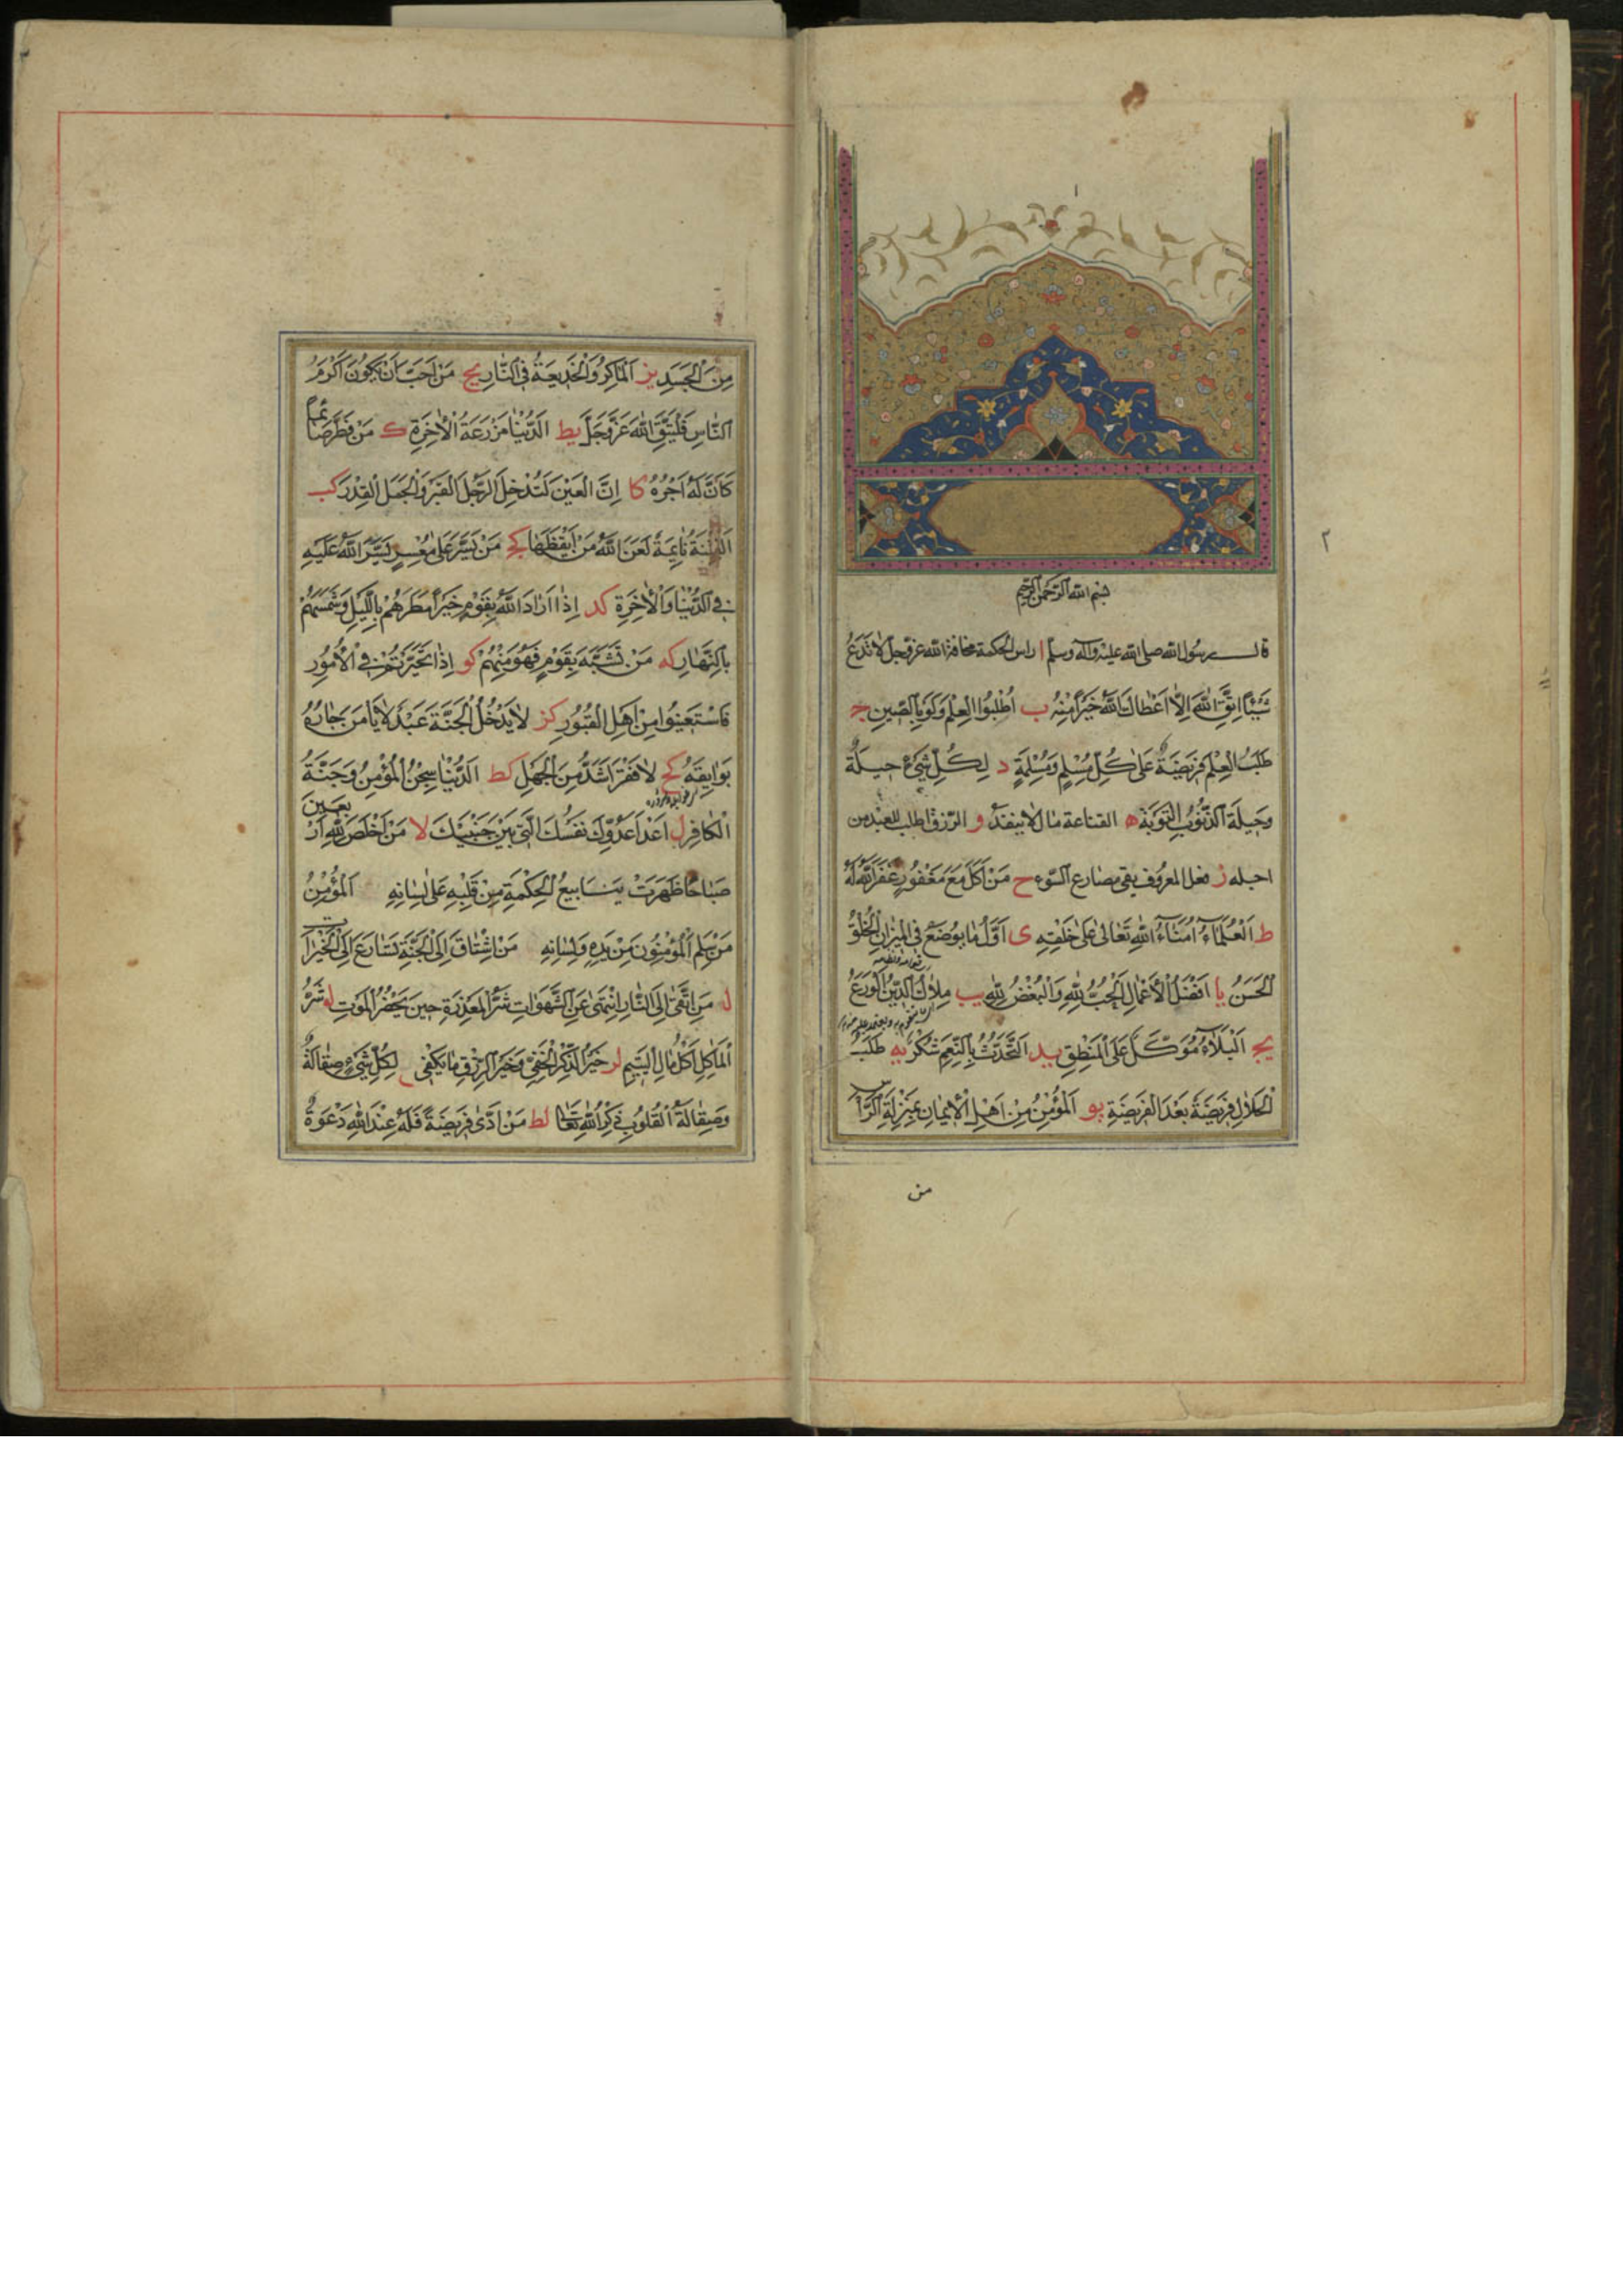 ١
٢
بسم الله الرحمن الرحیم
قال رسول الله صلی الله علیه وآله وسلم ا راس الحکمة مخافة الله عز وجل لا تدع
شَیْئًا اتِّقَاءَ اللهِ اِلّا اَعْطاكَ اللهُ خَیْرًا مِنْهُ ب اُطْلُبُوا الْعِلْمَ وَلَوْ بِالصّینِ ج
طَلَبُ الْعِلْمِ فَریضَةٌ عَلیٰ کُلِّ مُسْلِمٍ وَمُسْلِمَةٍ د لِکُلِّ شَیْءٍ حیلَةٌ
وَحیلَةُ الذُّنُوبِ التَّوْبَة ه القناعة مال لا ینفد و الرزق اطلب للعبد من
اجله ز فعل المعروف یقی مصارع السّوء ح مَنْ اَکَلَ مَعَ مَغْفُورٍ غَفَرَ اللهُ لَهُ
ط اَلْعُلَمَاءُ اُمَنَاءُ اللهِ تَعَالیٰ عَلیٰ خَلْقِهِ ی اَوَّلُ مٰا یُوضَعُ فِی الْمیزانِ الْخُلْقُ
الْحَسَنُ یا اَفْضَلُ الْاَعْمالِ الْحُبُّ لِلّٰهِ وَالْبُغْضُ لِلّٰهِ یب مِلاكُ الدّینِ الْوَرَعُ
یج اَلْبَلٰاءُ مُوَکَّلٌ عَلَی الْمَنْطِقِ ید اَلتَّحَدُّثُ بِالنِّعَمِ شُکْرٌ یه طَلَبُ
الْحَلالِ فَریضَةٌ بَعْدَ الْفَریضَةِ یو اَلْمُؤْمِنُ مِنْ اَهْلِ الْایمٰانِ بِمَنْزِلَةِ الرَّاْسِ
من
مِنَ الْجَسَدِ یز اَلْمَاکِرُ وَالْخَدیعَةُ فِی النّارِ یح مَنْ اَحَبَّ اَنْ یَکُونَ اَکْرَمَ
النّاسِ فَلْیَتَّقِ اللهَ عَزَّ وَجَلَّ یط اَلدُّنْیٰا مَزْرَعَةُ الْاٰخِرَةِ ك مَنْ فَطَّرَ صَائِمًا
کَانَ لَهُ اَجْرُهُ کا اِنَّ الْعَیْنَ لَتُدْخِلُ الرَّجُلَ الْقَبْرَ وَالْجَمَلَ الْقِدْرَ کب
اَلْفِتْنَةُ نٰائِمَةٌ لَعَنَ اللهُ مَنْ اَیْقَظَهٰا کج مَنْ یَسَّرَ عَلیٰ مُعْسِرٍ یَسَّرَ اللهُ عَلَیْهِ
فِی الدُّنْیٰا وَالْاٰخِرَةِ کد اِذٰا اَرٰادَ اللهُ بِقَوْمٍ خَیْرًا مَطَرَهُمْ بِاللَّیْلِ وَشَمَّسَهُمْ
بِالنَّهٰارِ که مَنْ تَشَبَّهَ بِقَوْمٍ فَهُوَ مِنْهُمْ کو اِذٰا تَحَیَّرْتُمْ فِی الْاُمُورِ
فَاسْتَعینُوا مِنْ اَهْلِ الْقُبُورِ کز لاٰ یَدْخُلُ الْجَنَّةَ عَبْدٌ لاٰ یَاْمَنُ جٰارُهُ
بَوٰایِقَهُ کح لاٰ فَقْرَ اَشَدُّ مِنَ الْجَهْلِ کط اَلدُّنْیٰا سِجْنُ الْمُؤْمِنِ وَجَنَّةُ
الْکٰافِرِ ل اَعْدٰا عَدُوِّكَ نَفْسُكَ الَّتی بَیْنَ جَنْبَیْكَ لا مَنْ اَخْلَصَ لِلّٰهِ اَرْبَعینَ
صَبٰاحًا ظَهَرَتْ یَنٰابیعُ الْحِکْمَةِ مِنْ قَلْبِهِ عَلیٰ لِسٰانِهِ اَلْمُؤْمِنُ
مَنْ سَلِمَ الْمُؤْمِنُونَ مِنْ یَدِهِ وَلِسٰانِهِ مَنِ اشْتٰاقَ اِلَی الْجَنَّةِ تَسٰارَعَ اِلَی الْخَیْرٰاتِ
مَنِ اتَّقیٰ اِلَی النّٰارِ انْتَهیٰ عَنِ الشَّهَوٰاتِ شَرُّ الْمَعْذِرَةِ حینَ یَحْضُرُ الْمَوْتِ لو شَرُّ
الْمَاٰکِلِ اَکْلُ مٰالِ الْیَتیمِ لز خَیْرُ الذِّکْرِ الْخَفِیُّ وَخَیْرُ الرِّزْقِ مٰا یَکْفی لِکُلِّ شَیْءٍ صِقٰالَةٌ
وَصِقٰالَةُ الْقُلُوبِ ذِکْرُ اللهِ تَعٰالیٰ لط مَنْ اَدّیٰ فَریضَةً فَلَهُ عِنْدَ اللهِ دَعْوَةٌ